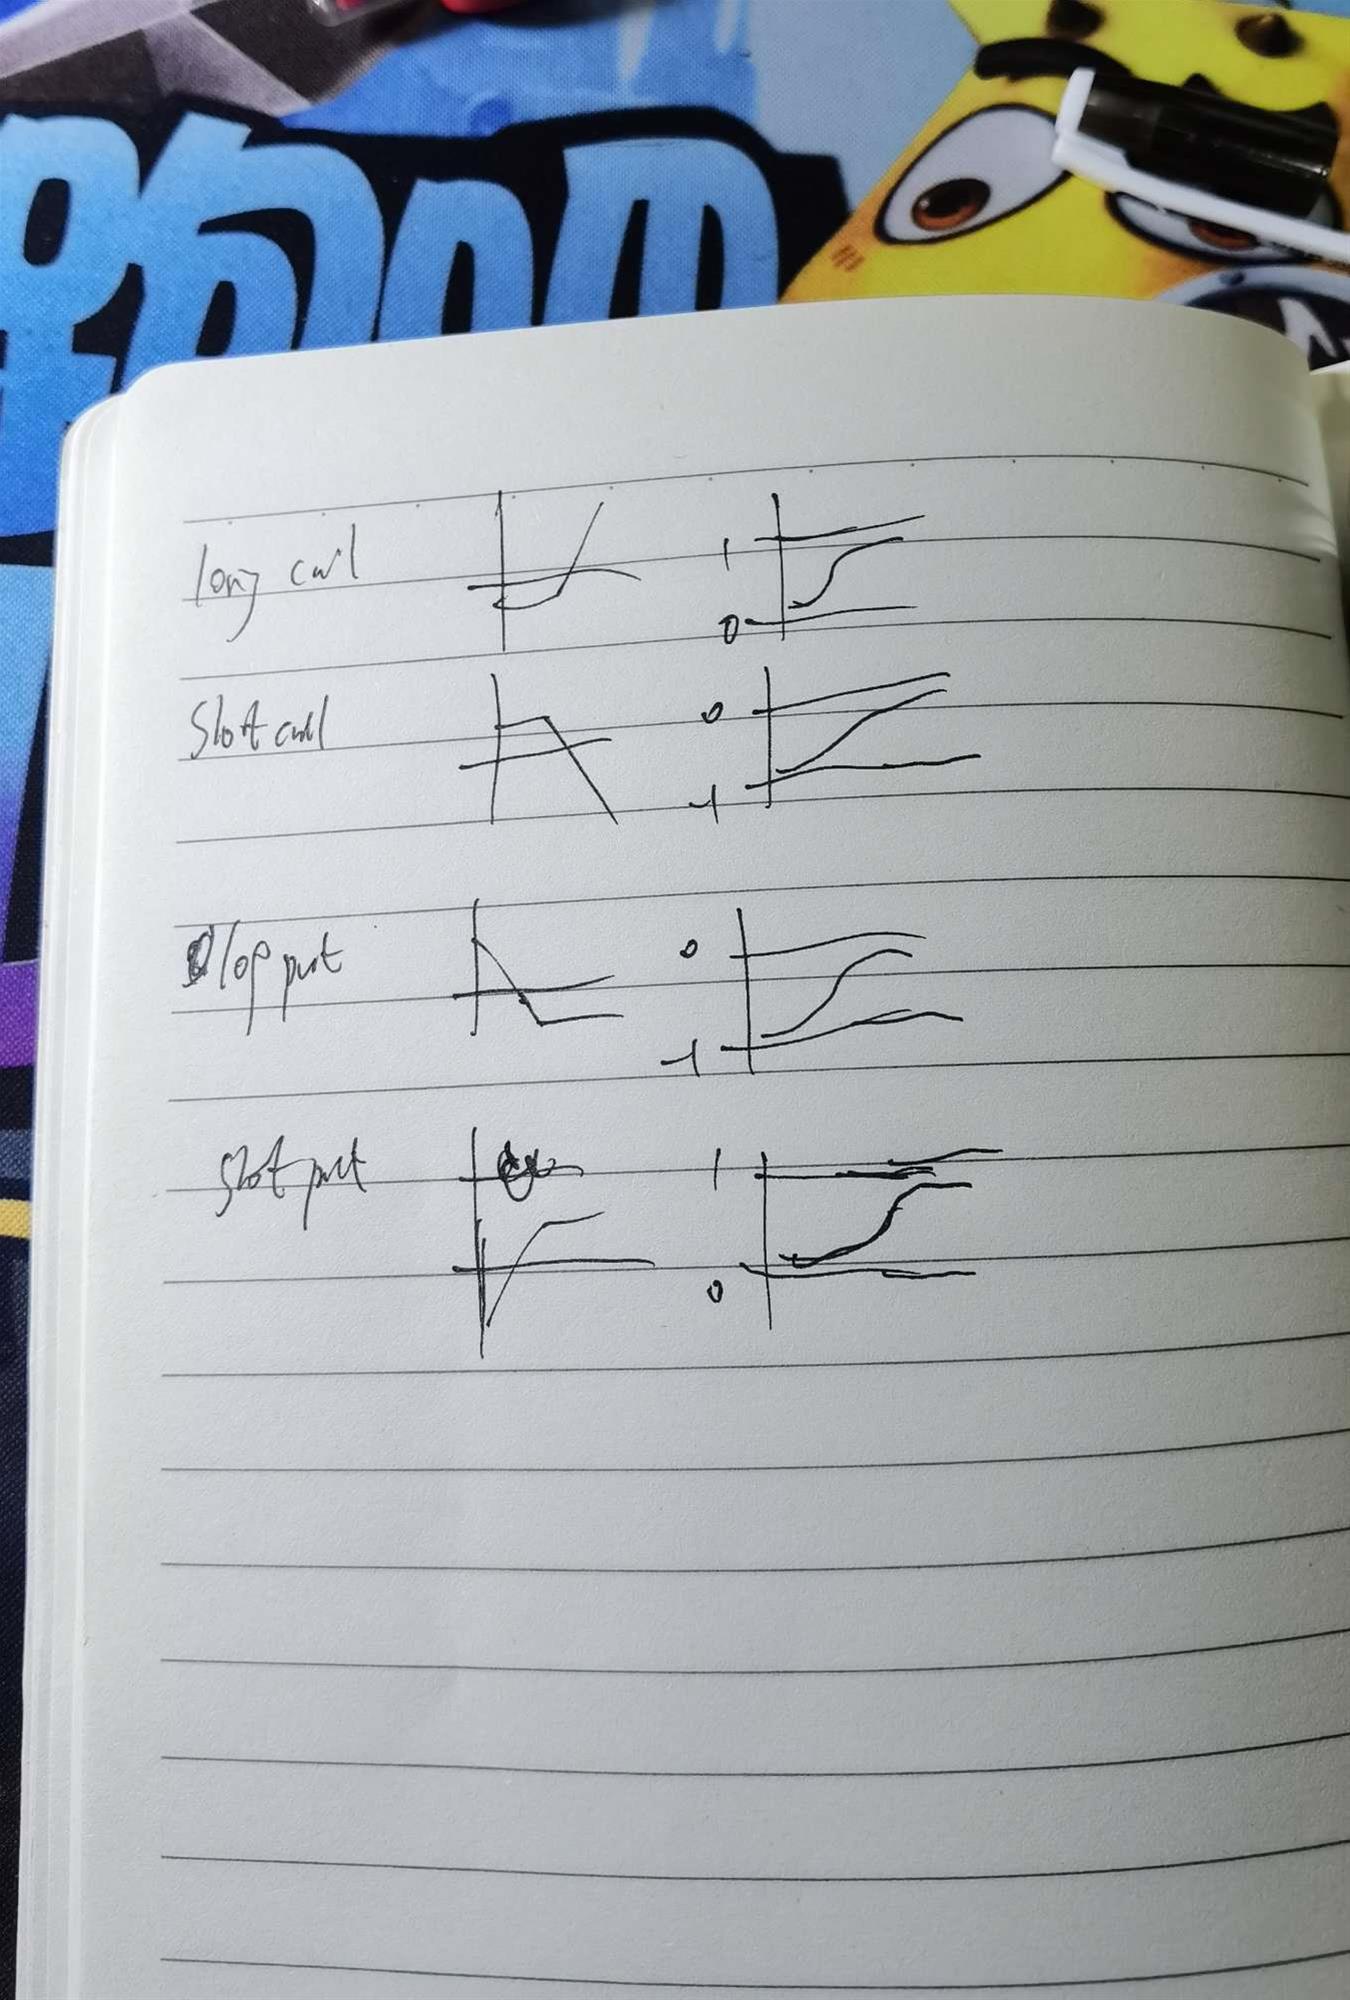 long call
1
0
Short call
0
-1
long put
0
-1
short put
1
0